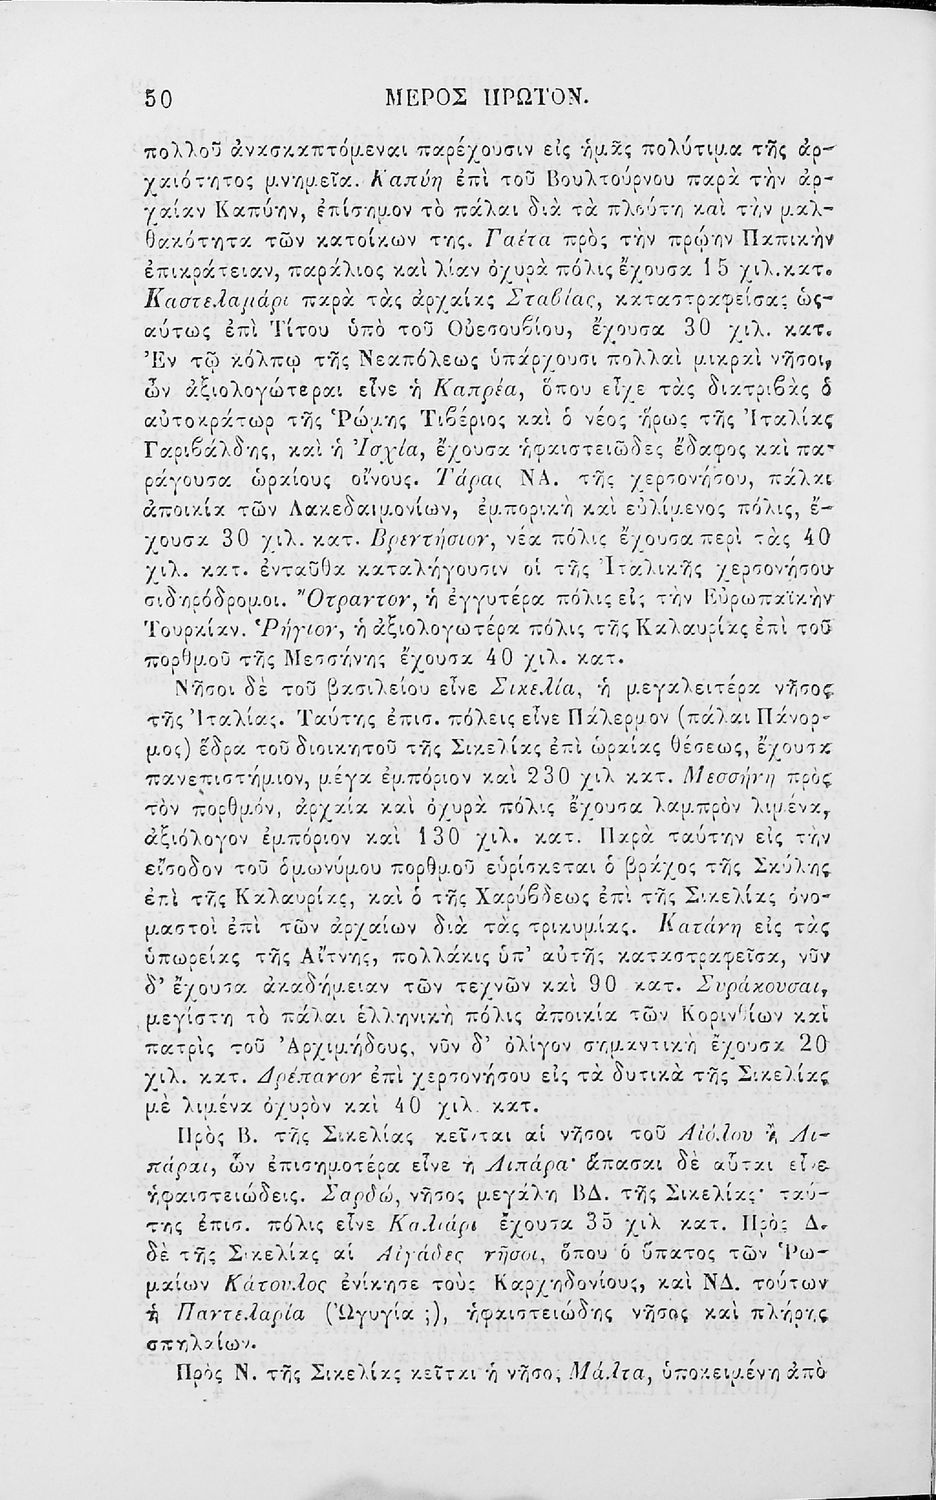 50 ΜΕΡΟΣ ΠΡΩΤΟΝ.
πολλοῦ ἀνασκαπτόμεναι παρέχουσιν εἰς ἡμᾶς πολύτιμα τῆς ἀρ-
χαιότητος μνημεῖα. Καπύη ἐπὶ τοῦ Βουλτούρνου παρὰ τὴν ἀρ-
χαίαν Καπύην, ἐπίσημον τὸ πάλαι διὰ τὰ πλούτη καὶ τὴν μαλ-
θακότητα τῶν κατοίκων της. Γαέτα πρὸς τὴν πρῴην Παπικὴν
ἐπικράτειαν, παράλιος καὶ λίαν ὀχυρὰ πόλις ἔχουσα 15 χιλ. κατ.
Καστελαμάρι παρὰ τὰς ἀρχαίας Σταβίας, καταστραφείσας ὡς-
αύτως ἐπὶ Τίτου ὑπὸ τοῦ Οὐεσουβίου, ἔχουσα 30 χιλ. κατ.
Ἐν τῷ κόλπῳ τῆς Νεαπόλεως ὑπάρχουσι πολλαὶ μικραὶ νῆσοι,
ὧν ἀξιολογώτεραι εἶνε ἡ Καπρέα, ὅπου εἶχε τὰς διατριβὰς ὁ
αὐτοκράτωρ τῆς Ῥώμης Τιβέριος καὶ ὁ νέος ἥρως τῆς Ἰταλίας
Γαριβάλδης, καὶ ἡ Ἰσχία, ἔχουσα ἡφαιστειῶδες ἔδαφος καὶ πα-
ράγουσα ὡραίους οἴνους. Τάρας ΝΑ. τῆς χερσονήσου, πάλαι
ἀποικία τῶν Λακεδαιμονίων, ἐμπορικὴ καὶ εὐλίμενος πόλις, ἔ-
χουσα 30 χιλ. κατ. Βρεντήσιον, νέα πόλις ἔχουσα περὶ τὰς 40
χιλ. κατ. ἐνταῦθα καταλήγουσιν οἱ τῆς Ἰταλικῆς χερσονήσου
σιδηρόδρομοι. Ὄτραντον, ἡ ἐγγυτέρα πόλις εἰς τὴν Εὐρωπαϊκὴν
Τουρκίαν. Ῥήγιον, ἡ ἀξιολογωτέρα πόλις τῆς Καλαυρίας ἐπὶ τοῦ
πορθμοῦ τῆς Μεσσήνης ἔχουσα 40 χιλ. κατ.
Νῆσοι δὲ τοῦ βασιλείου εἶνε Σικελία, ἡ μεγαλειτέρα νῆσος
τῆς Ἰταλίας. Ταύτης ἐπισ. πόλεις εἶνε Πάλερμον (πάλαι Πάνορ-
μος) ἕδρα τοῦ διοικητοῦ τῆς Σικελίας ἐπὶ ὡραίας θέσεως, ἔχουσα
πανεπιστήμιον, μέγα ἐμπόριον καὶ 230 χιλ κατ. Μεσσήνη πρὸς
τὸν πορθμόν, ἀρχαία καὶ ὀχυρὰ πόλις ἔχουσα λαμπρὸν λιμένα,
ἀξιόλογον ἐμπόριον καὶ 130 χιλ. κατ. Παρὰ ταύτην εἰς τὴν
εἴσοδον τοῦ ὁμωνύμου πορθμοῦ εὑρίσκεται ὁ βράχος τῆς Σκύλης
ἐπὶ τῆς Καλαυρίας, καὶ ὁ τῆς Χαρύβδεως ἐπὶ τῆς Σικελίας ὀνο-
μαστοὶ ἐπὶ τῶν ἀρχαίων διὰ τὰς τρικυμίας. Κατάνη εἰς τὰς
ὑπωρείας τῆς Αἴτνης, πολλάκις ὑπ' αὐτῆς καταστραφεῖσα, νῦν
δ' ἔχουσα ἀκαδήμειαν τῶν τεχνῶν καὶ 90 κατ. Συράκουσαι,
μεγίστη τὸ πάλαι ἑλληνικὴ πόλις ἀποικία τῶν Κορινθίων καὶ
πατρὶς τοῦ Ἀρχιμήδους, νῦν δ' ὀλίγον σημαντικὴ ἔχουσα 20
χιλ. κατ. Δρέπανον ἐπὶ χερσονήσου εἰς τὰ δυτικὰ τῆς Σικελίας
μὲ λιμένα ὀχυρὸν καὶ 40 χιλ. κατ.
Πρὸς Β. τῆς Σικελίας κεῖνται αἱ νῆσοι τοῦ Αἰόλου ἢ Λι-
πάραι, ὧν ἐπισημοτέρα εἶνε ἡ Λιπάρα· ἅπασαι δὲ αὗται εἶνε
ἡφαιστειώδεις. Σαρδώ, νῆσος μεγάλη ΒΔ. τῆς Σικελίας· ταύ-
της ἐπισ. πόλις εἶνε Καλιάρι ἔχουσα 35 χιλ κατ. Πρὸς Δ.
δὲ τῆς Σικελίας αἱ Αἰγάδες νῆσοι, ὅπου ὁ ὕπατος τῶν Ῥω-
μαίων Κάτουλος ἐνίκησε τοὺς Καρχηδονίους, καὶ ΝΔ. τούτων
ἡ Πανтελαρία (Ὠγυγία ;), ἡφαιστειώδης νῆσος καὶ πλήρης
σπηλαίων.
Πρὸς Ν. τῆς Σικελίας κεῖται ἡ νῆσος Μάλτα, ὑποκειμένη ἀπὸ